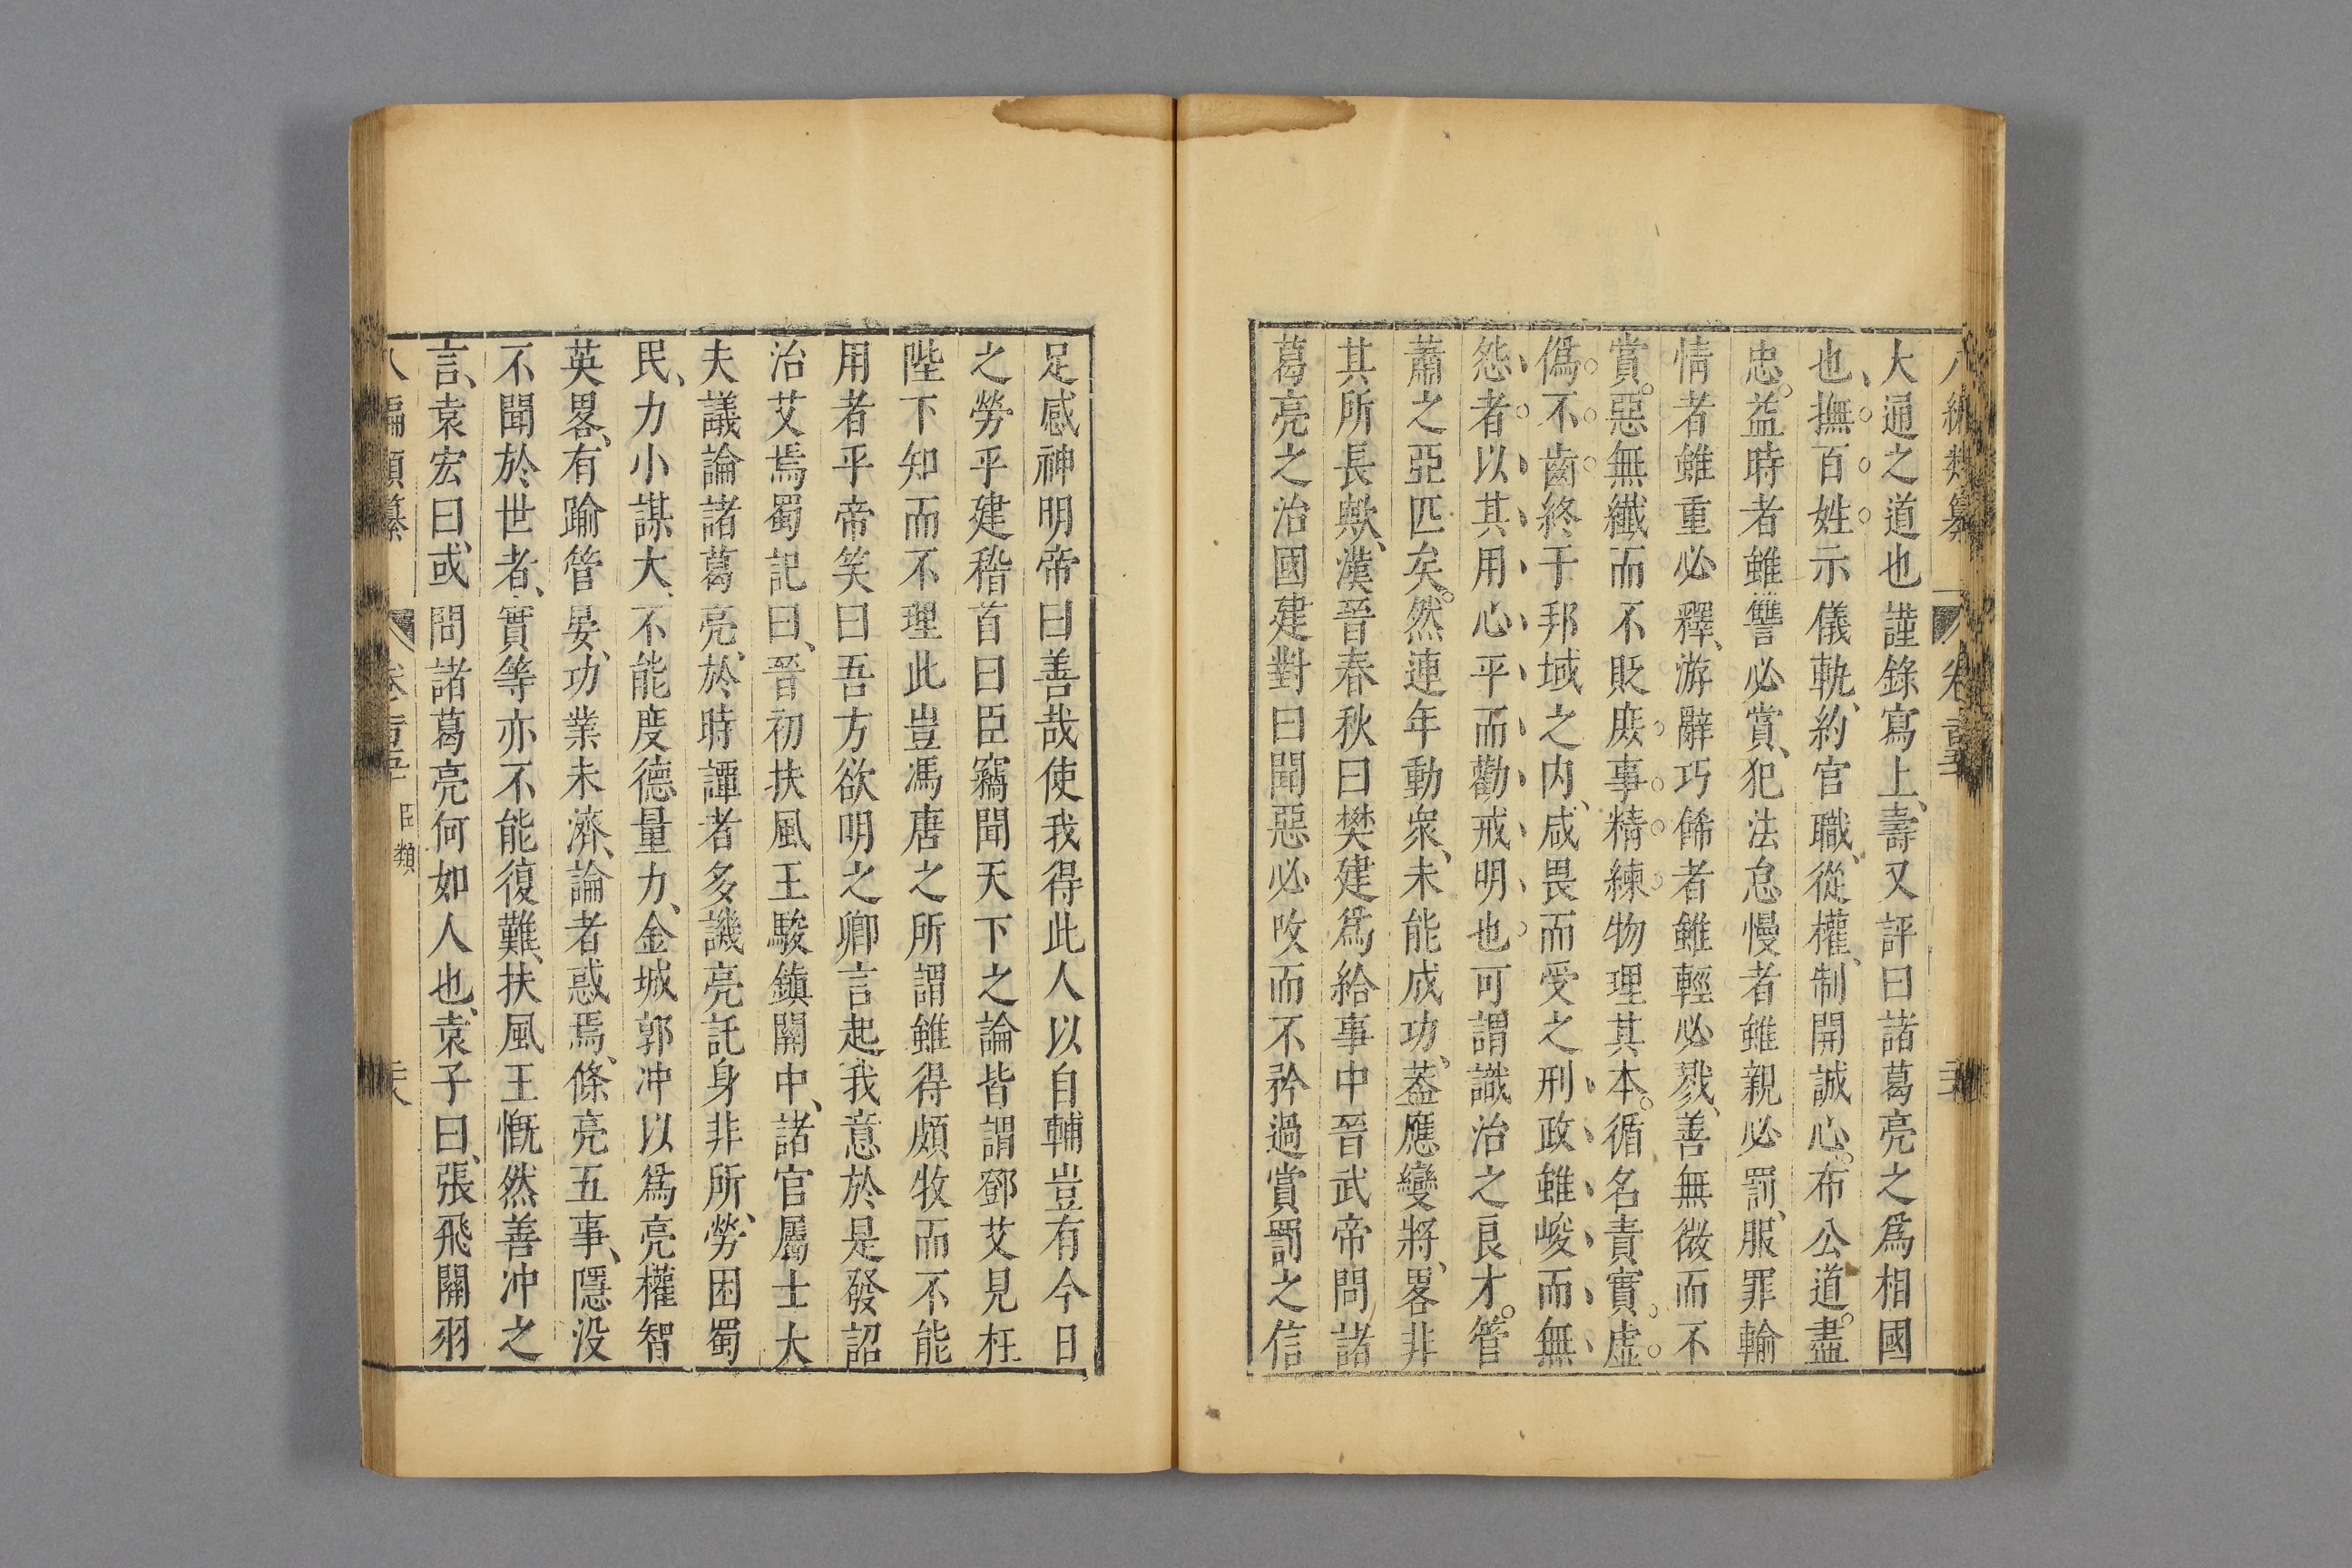 八編類纂 卷
大通之道也謹錄寫上壽又評曰諸葛亮之爲相國
也撫百姓示儀軌約官職從權制開誠心布公道盡
忠益時者雖讐必賞犯法怠慢者雖親必罰服罪輸
情者雖重必釋游辭巧餙者雖輕必戮善無微而不
賞惡無纖而不貶庻事精練物理其本循名責實虛
僞不齒終于邦域之內咸畏而受之刑政雖峻而無
怨者以其用心平而勸戒明也可謂識治之良才管
蕭之亞匹矣然連年動衆未能成功葢應變將畧非
其所長歟漢晉春秋曰樊建爲給事中晉武帝問諸
葛亮之治國建對曰聞惡必攺而不矜過賞罰之信
足感神明帝曰善哉使我得此人以自輔豈有今日
之勞乎建稽首曰臣竊聞天下之論皆謂鄧艾見枉
陛下知而不理此豈馮唐之所謂雖得頗牧而不能
用者乎帝笑曰吾方欲明之卿言起我意於是發詔
治艾焉蜀記曰晉初扶風王駿鎮關中諸官屬士大
夫議論諸葛亮於時譚者多譏亮託身非所勞困蜀
民力小謀大不能度德量力金城郭冲以爲亮權智
英畧有踰管晏功業未濟論者惑焉條亮五事隱没
不聞於世者實等亦不能復難扶風王慨然善冲之
言袁宏曰或問諸葛亮何如人也袁子曰張飛關羽
八編類纂 卷 臣類